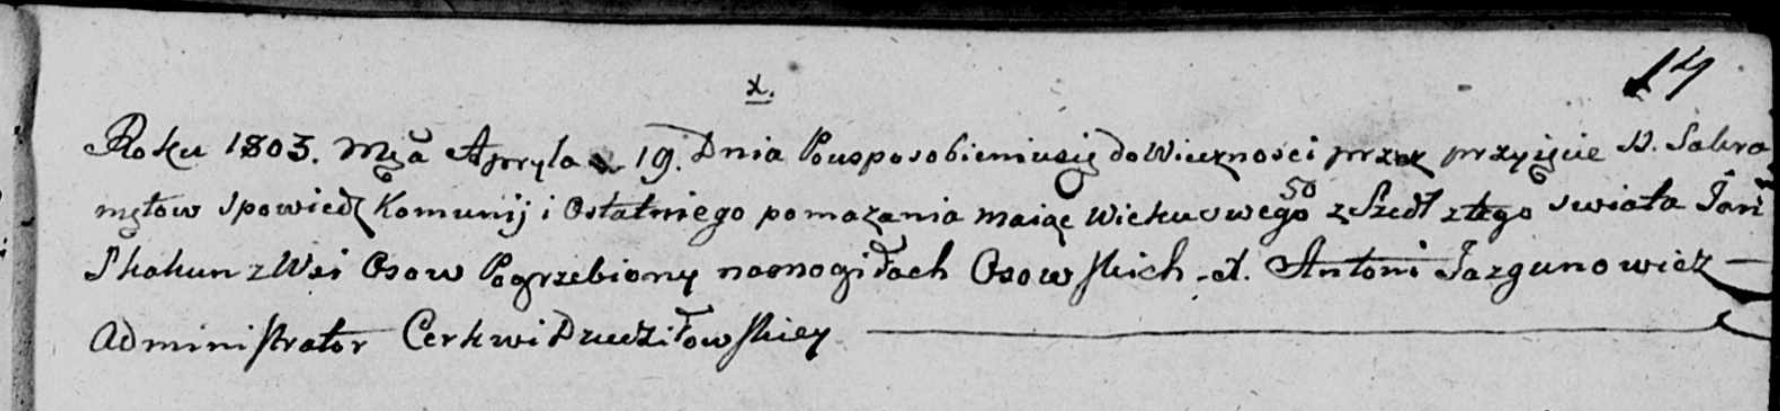 14
x.
Roku 1803. Mca Apryla 19. Dnia Po usposobieniu się do Wieczności przez przyięcie S. Sakra
mętow spowiedz Komunij i Ostatniego pomazania maiąc Wieku swego 50 z Szedł z tego swiata Jan
Skakun z Wsi Osow Pogrzebiony na mogiłach Osowskich X. Antoni Jazgunowicz
Administrator Cerkwi Dziedziłowskiey